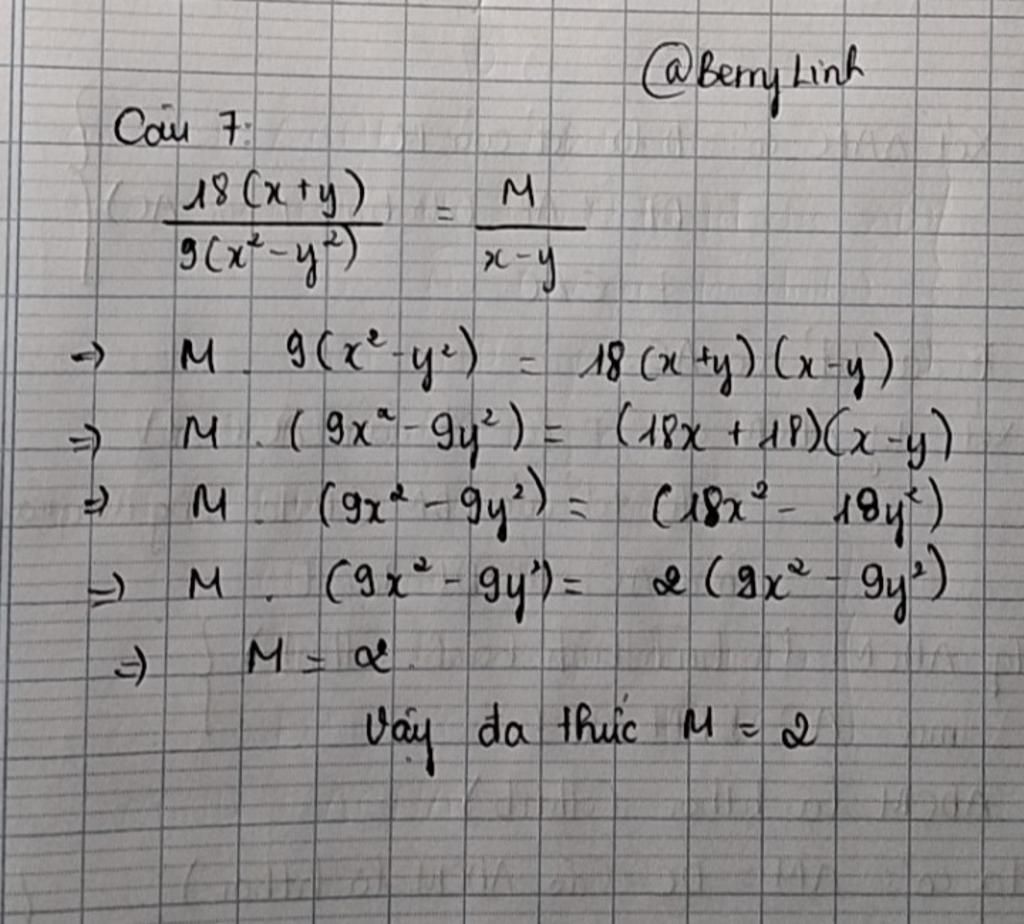 @Berry Linh
Câu 7:
18(x+y) / 9(x²-y²) = M / x-y
=> M . 9(x²-y²) = 18(x+y)(x-y)
=> M . (9x²-9y²) = (18x+18)(x-y)
=> M . (9x²-9y²) = (18x²-18y²)
=> M . (9x²-9y²) = 2(9x²-9y²)
=> M = 2.
Vậy đa thức M = 2